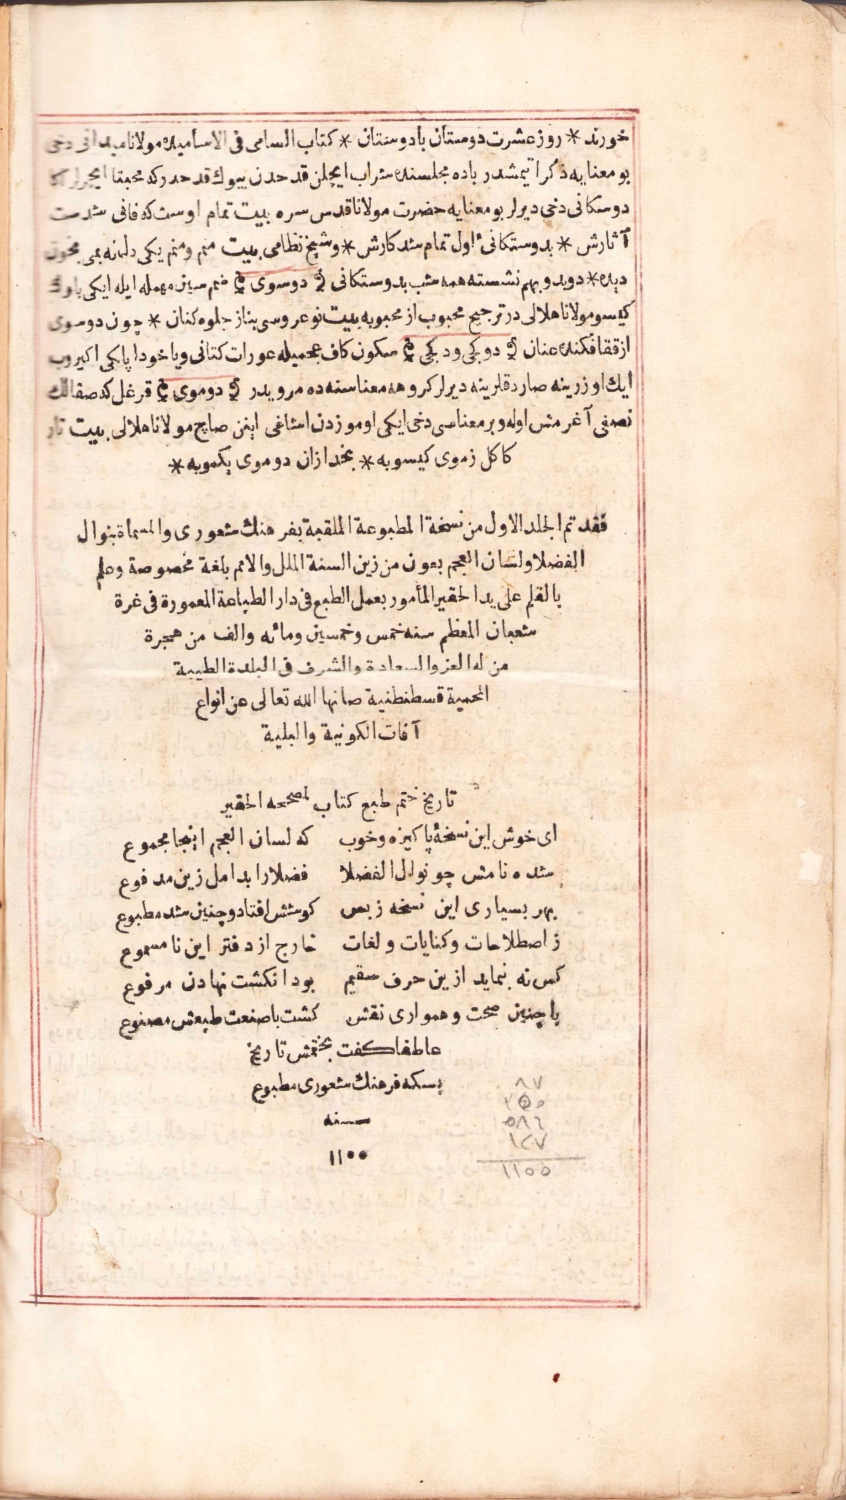 خورند * روز عشرت دوستان بادوستان * كتاب السامى فى الاساميده مولانا ميدانى دخى
بو معنايه ذكر اتيمشدر باده مجلسنده شراب ايچلن قدحدن بيوك قدحدركه محبقا ايچرلر
دوستكانى دخى ديرلر بو معنايه حضرت مولانا قدس سره بيت تمام اوست كه فانى شدست
آثارش * بدوستكانئ اول تمام شد كارش * و شيخ نظامى بيت منم ومنم يكى دلمانه بمى
ديده * دويدو بهم نشسته همه شب بدوستكانى دوسوى ضم سين مهمله ايله ايكى يا
كيسو مولانا هلالى در ترجيح محبوب از محبوبه بيت نو عروسى بناز جلوه كنان * چون دوسوى
از قفا فكنده عنان دوكى و دبكى سكون كاف عجميله عورات كتانى ويا خود اپاكى اكيروب
ايك اوزرينه صاردقلرينه ديرلر كروهه معناسنه ده مرويدر دوموى قرغل كه صقالك
نصفى آغرمش اوله وبر معناسى دخى ايكى اوموزدن اشاغى اينن صاچ مولانا هلالى بيت تار
كاكل زموى كيسو به * بخدا زان دوموى يكموبه *
فقد تم الجلد الاول من نسخة المطبوعة الملقبة بفرهنك شعورى والمسماة بنوال
الفضلا ولسان العجم بعون من زين السنة الملل والامم بلغة مخصوصة وعلم
بالقلم على يد الحقير المأمور بعمل الطبع فى دار الطباعة المعمورة فى غرة
شعبان المعظم سنه خمس وخمسين ومائه والف من هجرة
من له العز والسعادة والشرف فى البلدة الطيبة
المحمية قسطنطنية صانها الله تعالى عن انواع
آفات الكونية والبلية
تاريخ ختم طبع كتاب لمصححه الحقير
اى خوش اين نسخۀ پاكيزه وخوب كه لسان العجم اينجا مجموع
شده نامش چو نوال الفضلا فضلارا بدامل زين مدفوع
بهر بسيارى اين نسخه زبس كوشش افتاد وچنين شد مطبوع
ز اصطلاحات وكنايات ولغات خارج از دفتر اين نا مسموع
كس نه بنمايد ازين حرف سقيم بود انكشت نهادن مرفوع
با چنين صحت وهموارى نقش كشت باصنعت طبعش مصنوع
عاطفا كفت بختمش تاريخ
بسكه فرهنك شعورى مطبوع
سنه
١١٥٥
٨٧
٣٥٥
٥٨٦
١٢٧
١١٥٥